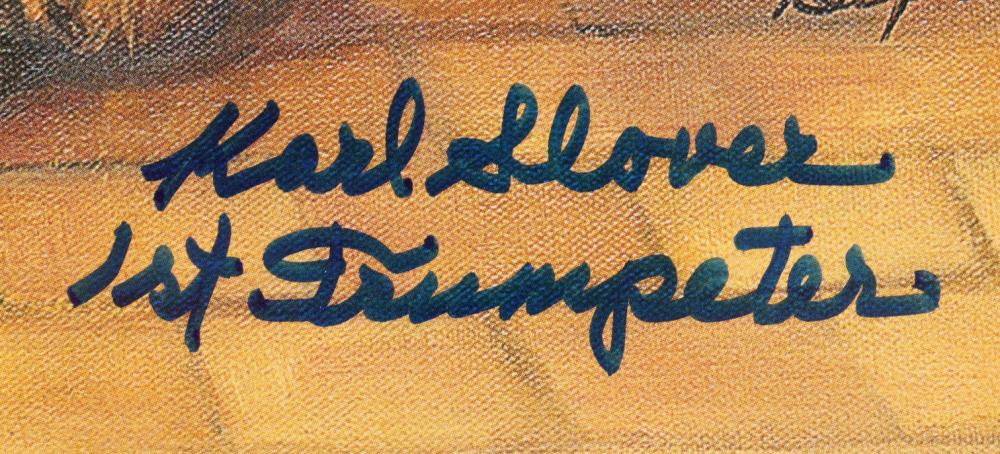 Karl Slover
1st Trumpeter